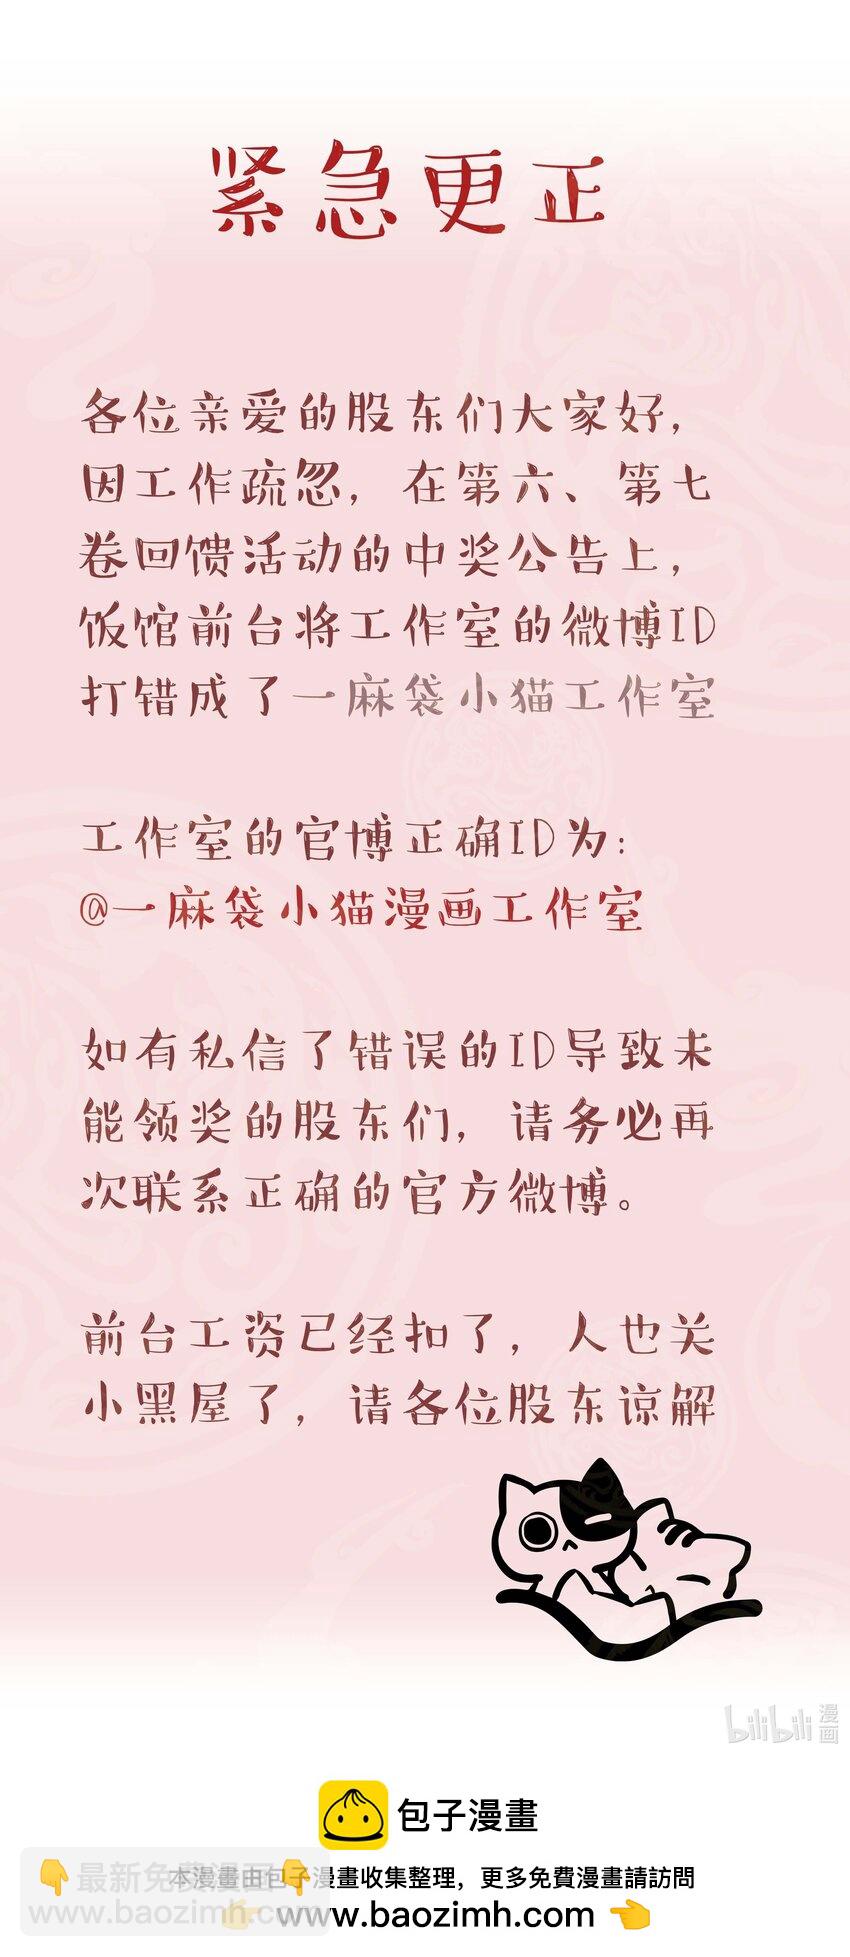 紧急更正
各位亲爱的股东们大家好，
因工作疏忽，在第六、第七
卷回馈活动的中奖公告上，
饭馆前台将工作室的微博ID
打错成了一麻袋小猫工作室
工作室的官博正确ID为：
@一麻袋小猫漫画工作室
如有私信了错误的ID导致未
能领奖的股东们，请务必再
次联系正确的官方微博。
前台工资已经扣了，人也关
小黑屋了，请各位股东谅解
bilibili 漫画
包子漫畫
👇最新免費漫画👇
本漫畫由包子漫畫收集整理，更多免費漫畫請訪問
www.baozimh.com
👉 www.baozimh.com 👈